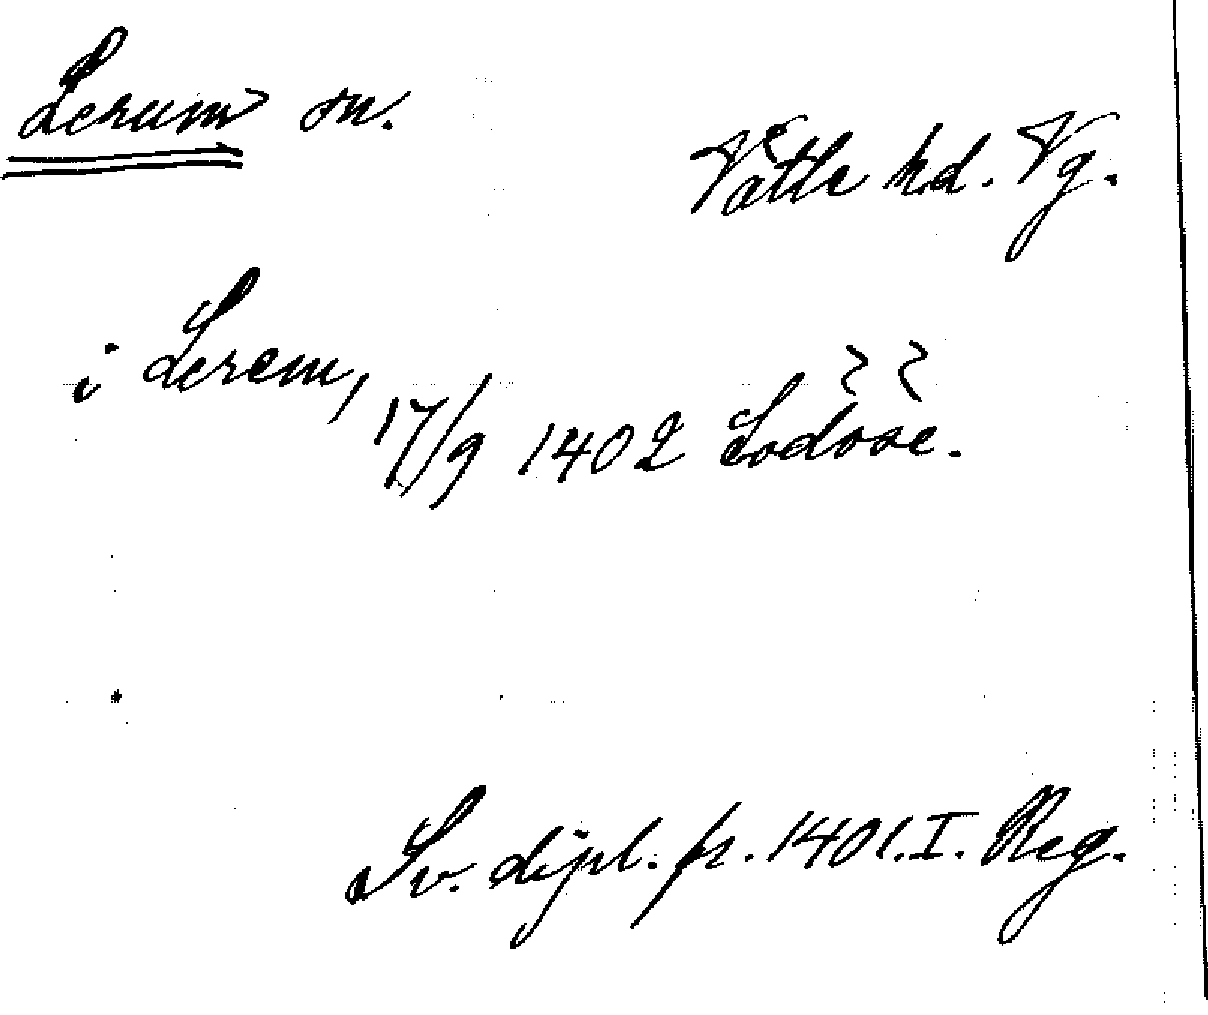 Lerum sn.
Vättle hd. Vg.
i Lerem,
17/9 1402 Lodose.
Sv. dipl. fr. 1401. I. Reg.